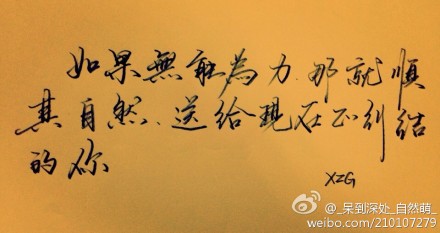 如果無能為力.那就順
其自然.送给現在正纠结
的你
XZG
_呆到深处_自然萌_
weibo.com/210107279